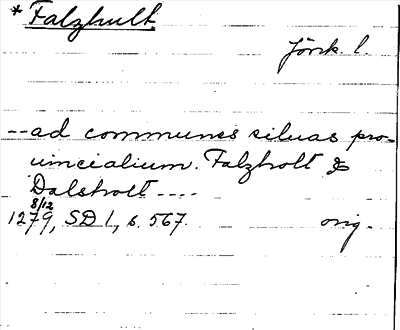 * Falzhult
Jönk. l.
-- ad communes siluas pro-
uincialium. Falzholt &
Dalsholt ----
8/12
1279, SD 1, s. 567. orig.